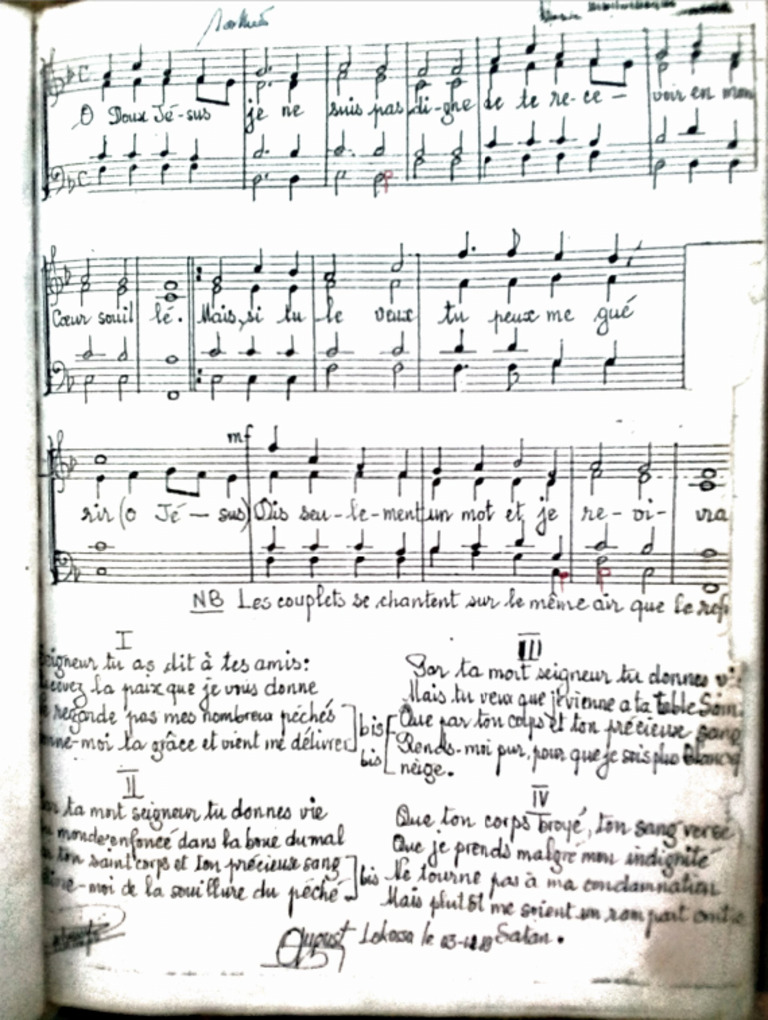 O Doux Jé-sus je ne suis pas di-gne de te re-ce- voir en mon
Cœur souil lé. Mais, si tu le veux tu peux me gué
mf
rir (o Jé - sus) Dis seu-le-ment un mot et je re-vi- vra
NB Les couplets se chantent sur le même air que le ref
I
eigneur tu as dit à tes amis:
cevez la paix que je vous donne
e regarde pas mes nombreux péchés
nne-moi ta grâce et vient me délivrer
bis
II
ta mort seigneur tu donnes vie
monde enfoncé dans la boue du mal
ton saint corps et ton précieuse sang
-moi de la souillure du péché
bis
III
Par ta mort seigneur tu donnes vi
Mais tu veux que je vienne a ta table Sain
bis
Que par ton corps et ton précieuse sang
bis
Rends-moi pur, pour que je sois plus blanc q
neige.
IV
Que ton corps broyé, ton sang versé
Que je prends malgré mon indignité
Ne tourne pas à ma condamnation
Mais plutôt me soient un rempart contre
Satan.
August Lokossa le